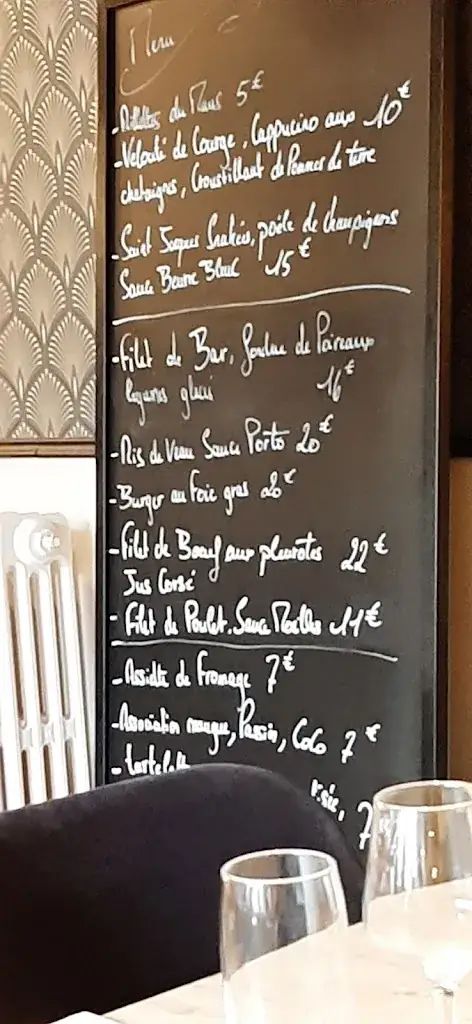 Menu
- Rillettes du Mans 5€
- Velouté de Courge, Cappucino aux 10€
chataignes, Croustillant de Pommes de terre
- Saint Jacques Snakées, poêlée de champignons
Sauce Beurre Blanc 15€
- Filet de Bar, fondue de Poireaux
légumes glacés 16€
- Ris de Veau Sauce Porto 20€
- Burger au foie gras 20€
- Filet de Boeuf aux pleurotes 22€
Jus Corsé
- Filet de Poulet. Sauce 11€
- Assiette de Fromage 7€
- Association mangue, Passion, Coco 7€
- tartelette
7